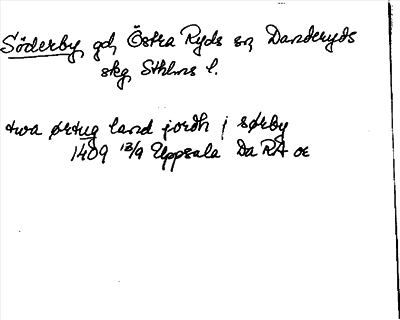 Söderby, gd, Östra Ryds sn, Danderyds
skg Sthlms l.
twa ørtug land jordh j sørby
1409 13/9 Uppsala Da RA or